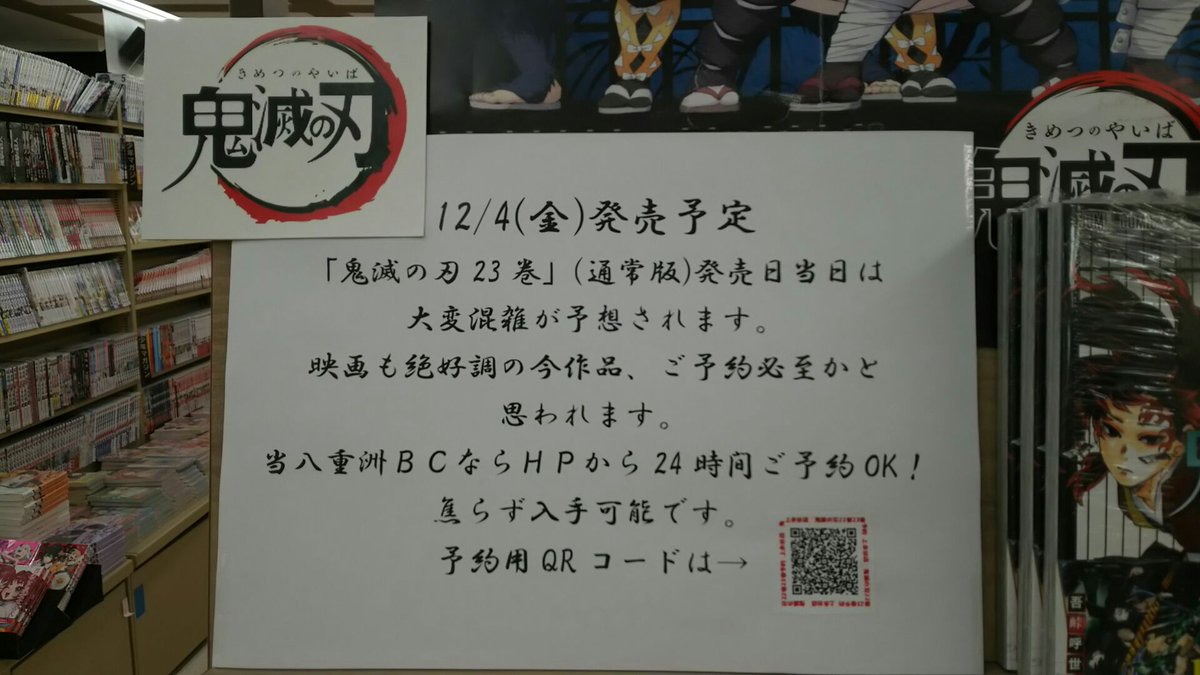 きめつのやいば
鬼滅の刃
きめつのやいば
鬼滅の刃
12/4(金)発売予定
「鬼滅の刃23巻」(通常版)発売日当日は
大変混雑が予想されます。
映画も絶好調の今作品、ご予約必至かと
思われます。
当八重洲BCならHPから24時間ご予約OK!
焦らず入手可能です。
予約用QRコードは→
吾峠呼世